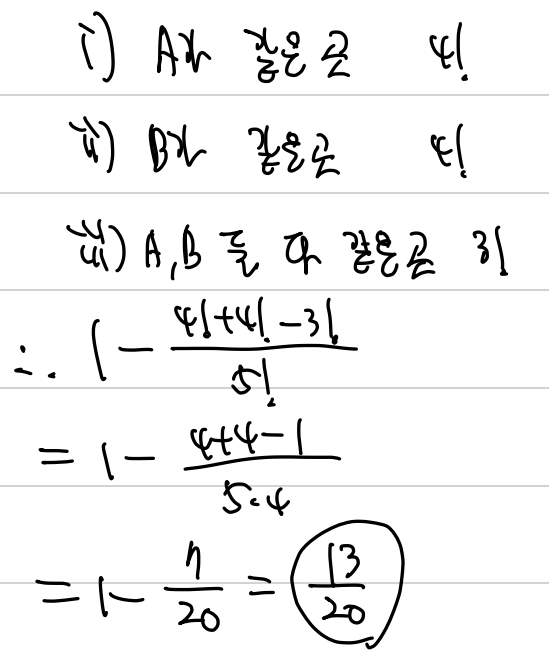 i) A가 같은 곳 4!
ii) B가 같은 곳 4!
iii) A, B 둘 다 같은 곳 3!
∴ 1 - (4! + 4! - 3!) / 5!
= 1 - (4+4-1) / (5·4)
= 1 - 7/20 = 13/20